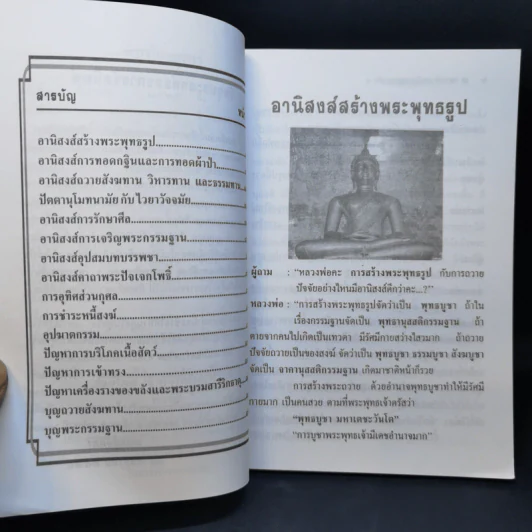 สารบัญ
อานิสงส์สร้างพระพุทธรูป
อานิสงส์การทอดกฐินและการทอดผ้าป่า
อานิสงส์ถวายสังฆทาน วิหารทาน และธรรมทาน
ปัตตานุโมทนามัย กับ ไวยาวัจจมัย
อานิสงส์การรักษาศีล
อานิสงส์การเจริญพระกรรมฐาน
อานิสงส์อุปสมบทบรรพชา
อานิสงส์คาถาพระปัจเจกโพธิ์
การอุทิศส่วนกุศล
การชำระหนี้สงฆ์
อุปฆาตกรรม
ปัญหาการบริโภคเนื้อสัตว์
ปัญหาการเข้าทรง
ปัญหาเครื่องรางของขลังและพระบรมสารีริกธาตุ
บุญถวายสังฆทาน
บุญพระกรรมฐาน
อานิสงส์สร้างพระพุทธรูป
ผู้ถาม : "หลวงพ่อคะ การสร้างพระพุทธรูป กับการถวาย
ปัจจัยอย่างไหนมีอานิสงส์ดีกว่าคะ...?"
หลวงพ่อ : "การสร้างพระพุทธรูปจัดว่าเป็น พุทธบูชา ถ้าใน
เรื่องกรรมฐานจัดเป็น พุทธานุสสติกรรมฐาน ถ้า
ตายจากคนไปเกิดเป็นเทวดา มีรัศมีกายสว่างไสวมาก ถ้าถวาย
ปัจจัยถวายเป็นของสงฆ์ จัดว่าเป็น พุทธบูชา ธรรมบูชา สังฆบูชา
จัดเป็น จาคานุสสติกรรมฐาน เกิดมาชาติหน้าก็รวย
การสร้างพระถวาย ด้วยอำนาจพุทธบูชาทำให้มีรัศมี
กายมาก เป็นคนสวย ตามที่พระพุทธเจ้าตรัสว่า
"พุทธบูชา มหาเตชะวันโต"
"การบูชาพระพุทธเจ้ามีเดชอำนาจมาก"